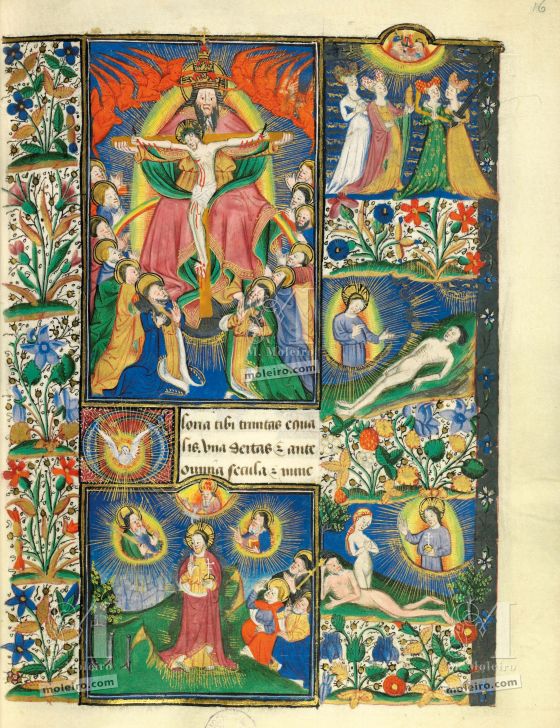 16
M. Moleiro
moleiro.com
loria tibi trinitas equa
lis, vna deitas & ante
omnia secula & nunc
M. Moleiro
moleiro.com
M. Moleiro
moleiro.com